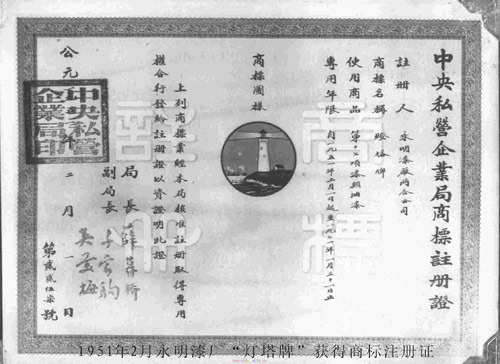 中央私營企業局商標註册證
註册人 永明漆廠兩合公司
商標名稱 燈塔牌
使用商品 第十七項漆類油漆
專用年限 自一九五一年二月一日起至一九七一年一月三十一日止
商標圖樣
上列商標業經本局核准註册取得專用
權合行發給註册證以資證明此證
局長 薛暮橋
副局長 千家駒
吳羹梅
公元
二月一日
中央私營企業局印
第貳貳伍柒號
商標
註冊
1951年2月永明漆厂“灯塔牌”获得商标注册证